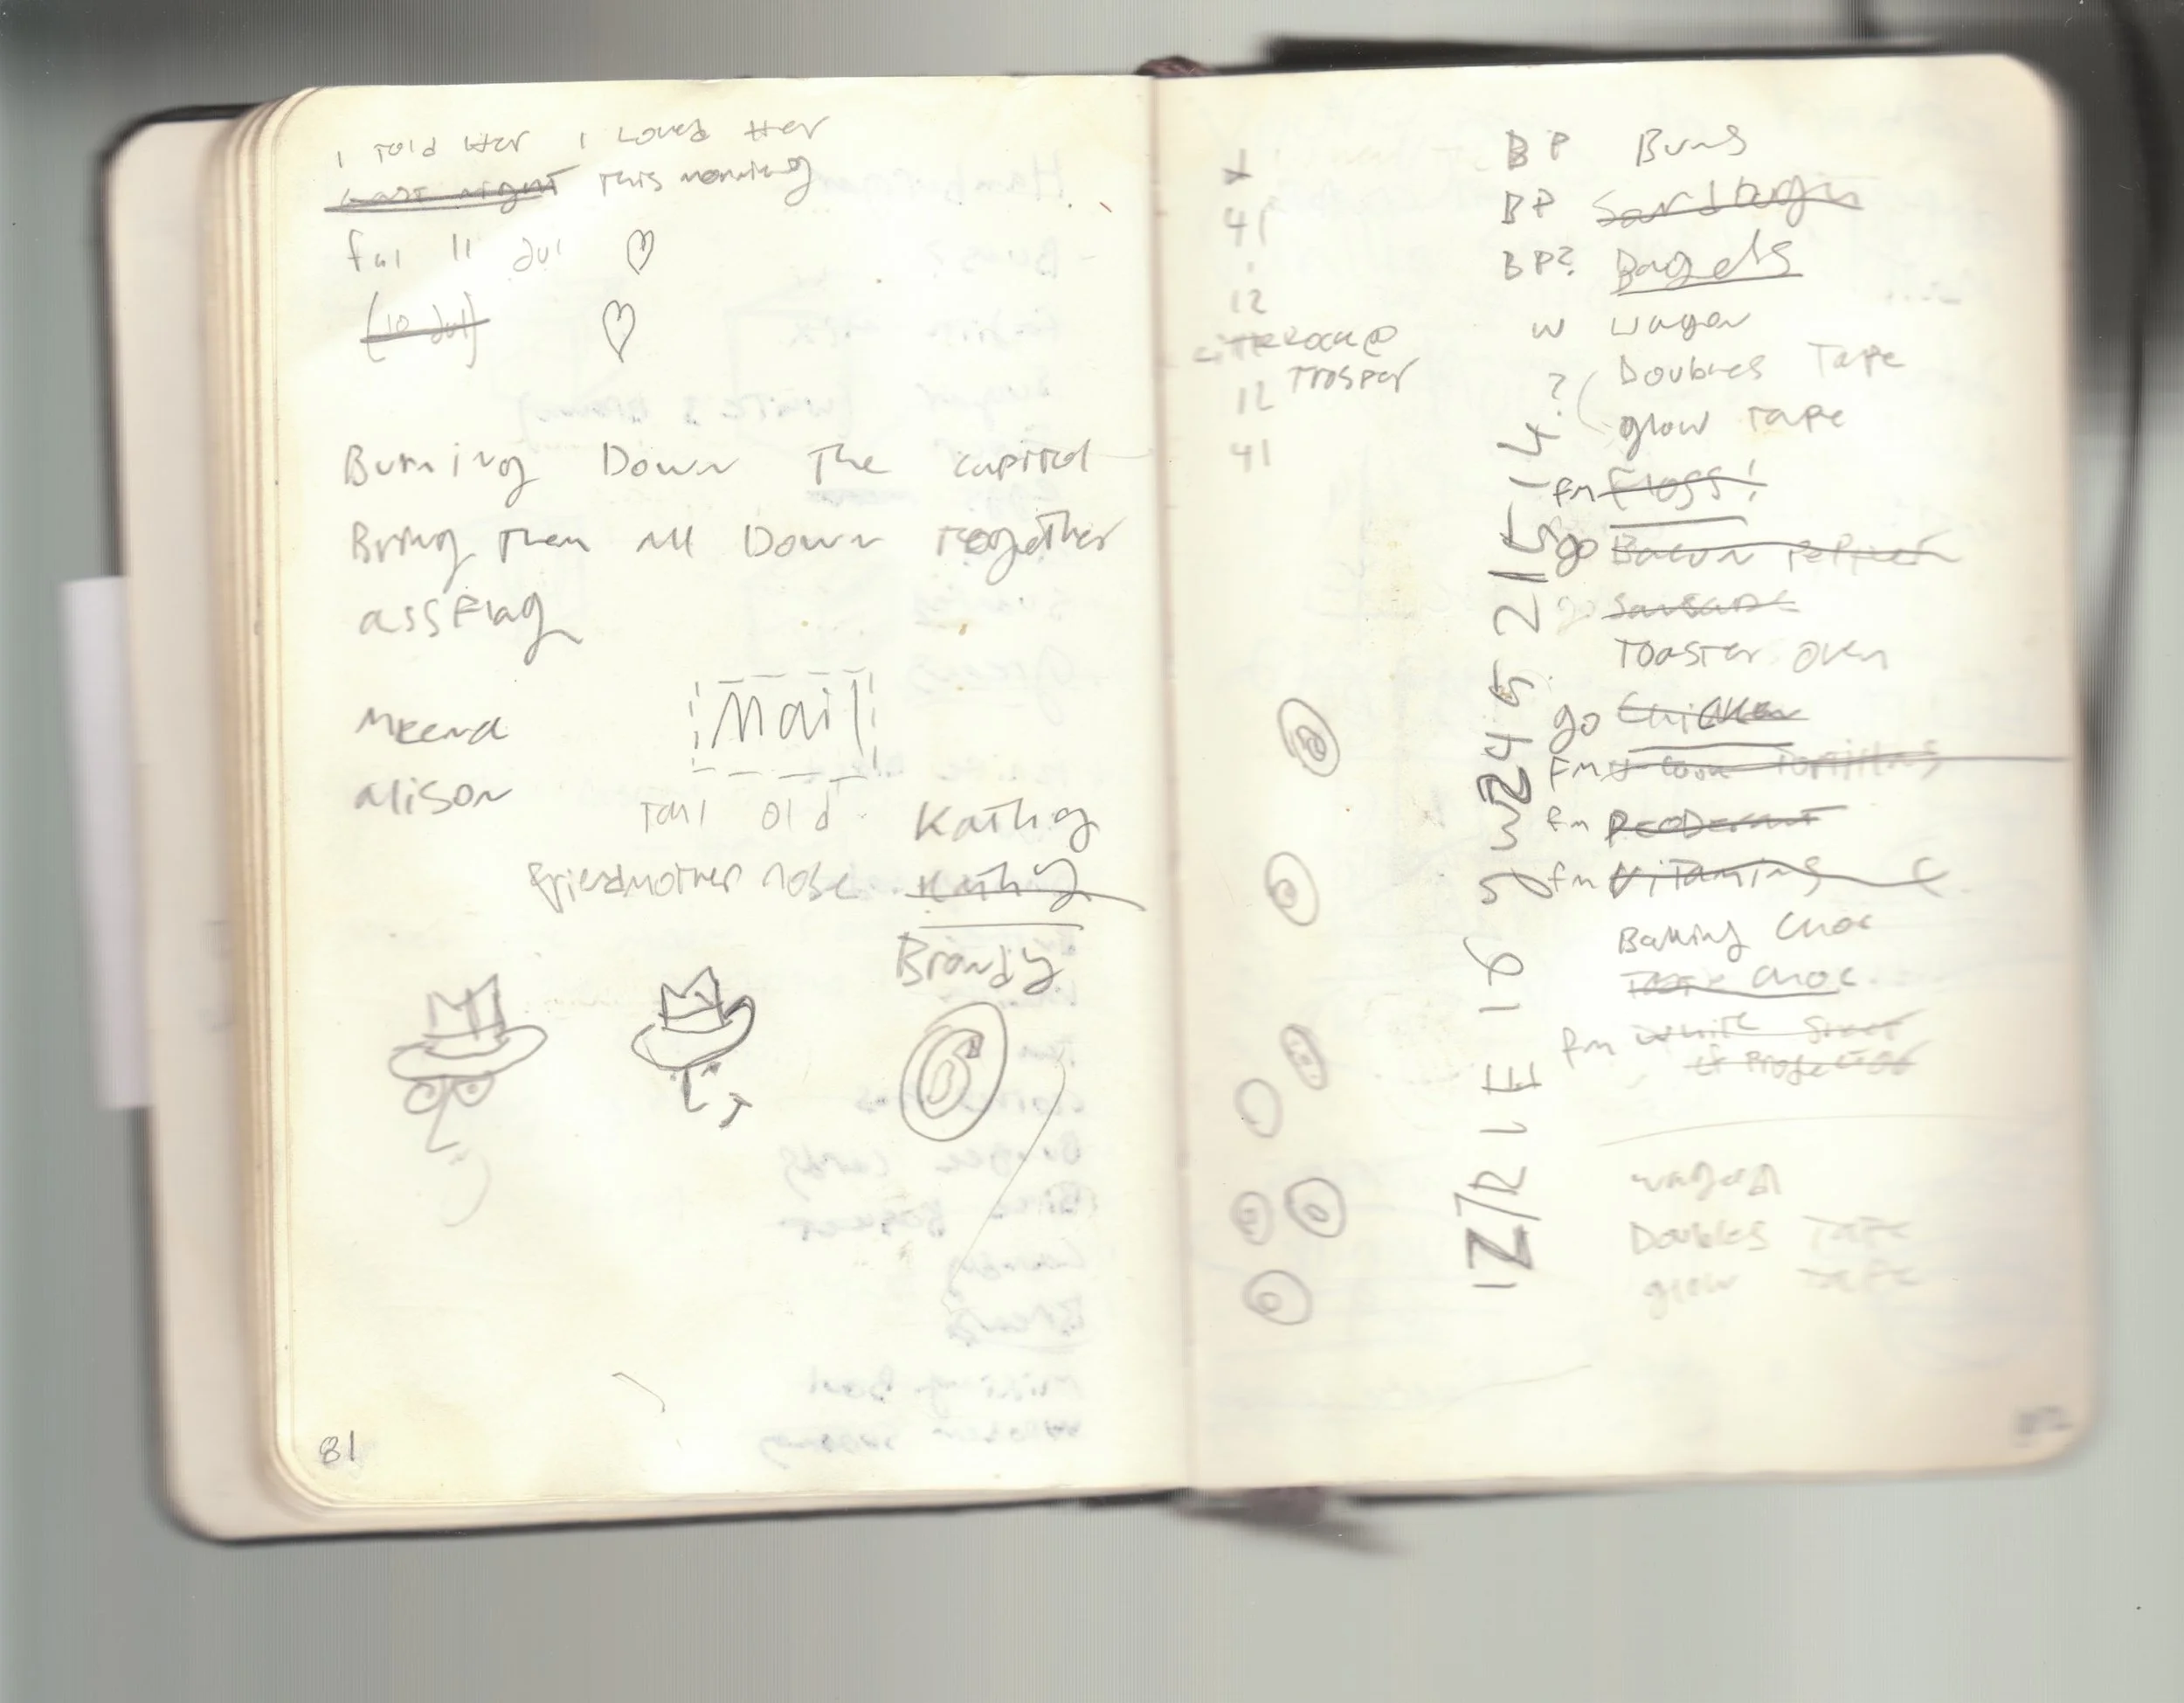 I Told Her I Loved Her
Last night This morning
fri 11 Jul
(10 Jul)
Burning Down The capitol
Bring Them All Down Together
assFlag
Meena
Alison
Mail
Tall old
Kathy
friend mother nose
Kathy
Brandy
6
81
41
12
LittleRock @
Trosper
12
41
BP Buns
BP
BP? Bagels
W wagon
? Doubles Tape
glow Tape
fm Floss!
go Bacon
go Sausage
Toaster oven
go Chicken
Fm Tortillas
fm Deoderant
fm Vitamins C
Baking Choc
Choc.
fm White Sheet
wagon
Doubles Tape
glow Tape
82